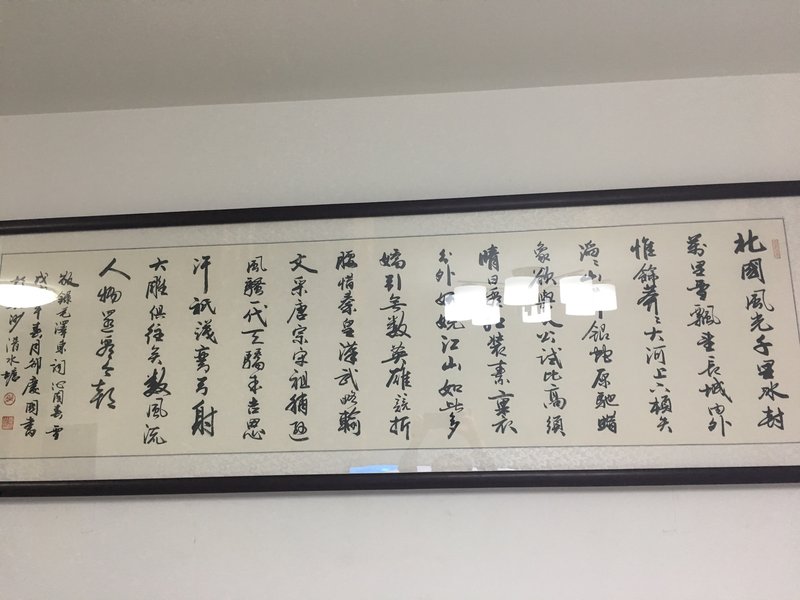 北國風光千里冰封
萬里雪飄望長城內外
惟餘莽々大河上下頓失
滔々山舞銀蛇原馳蠟
象欲與天公試比高須
晴日看紅裝素裹
分外妖嬈江山如此多
嬌引無數英雄競折
腰惜秦皇漢武略輸
文采唐宗宋祖稍遜
風騷一代天驕成吉思
汗祇識彎弓射
大雕俱往矣數風流
人物還看今朝
敬錄毛澤東詞沁園春雪
戊年春月慶國書
沙清水塘